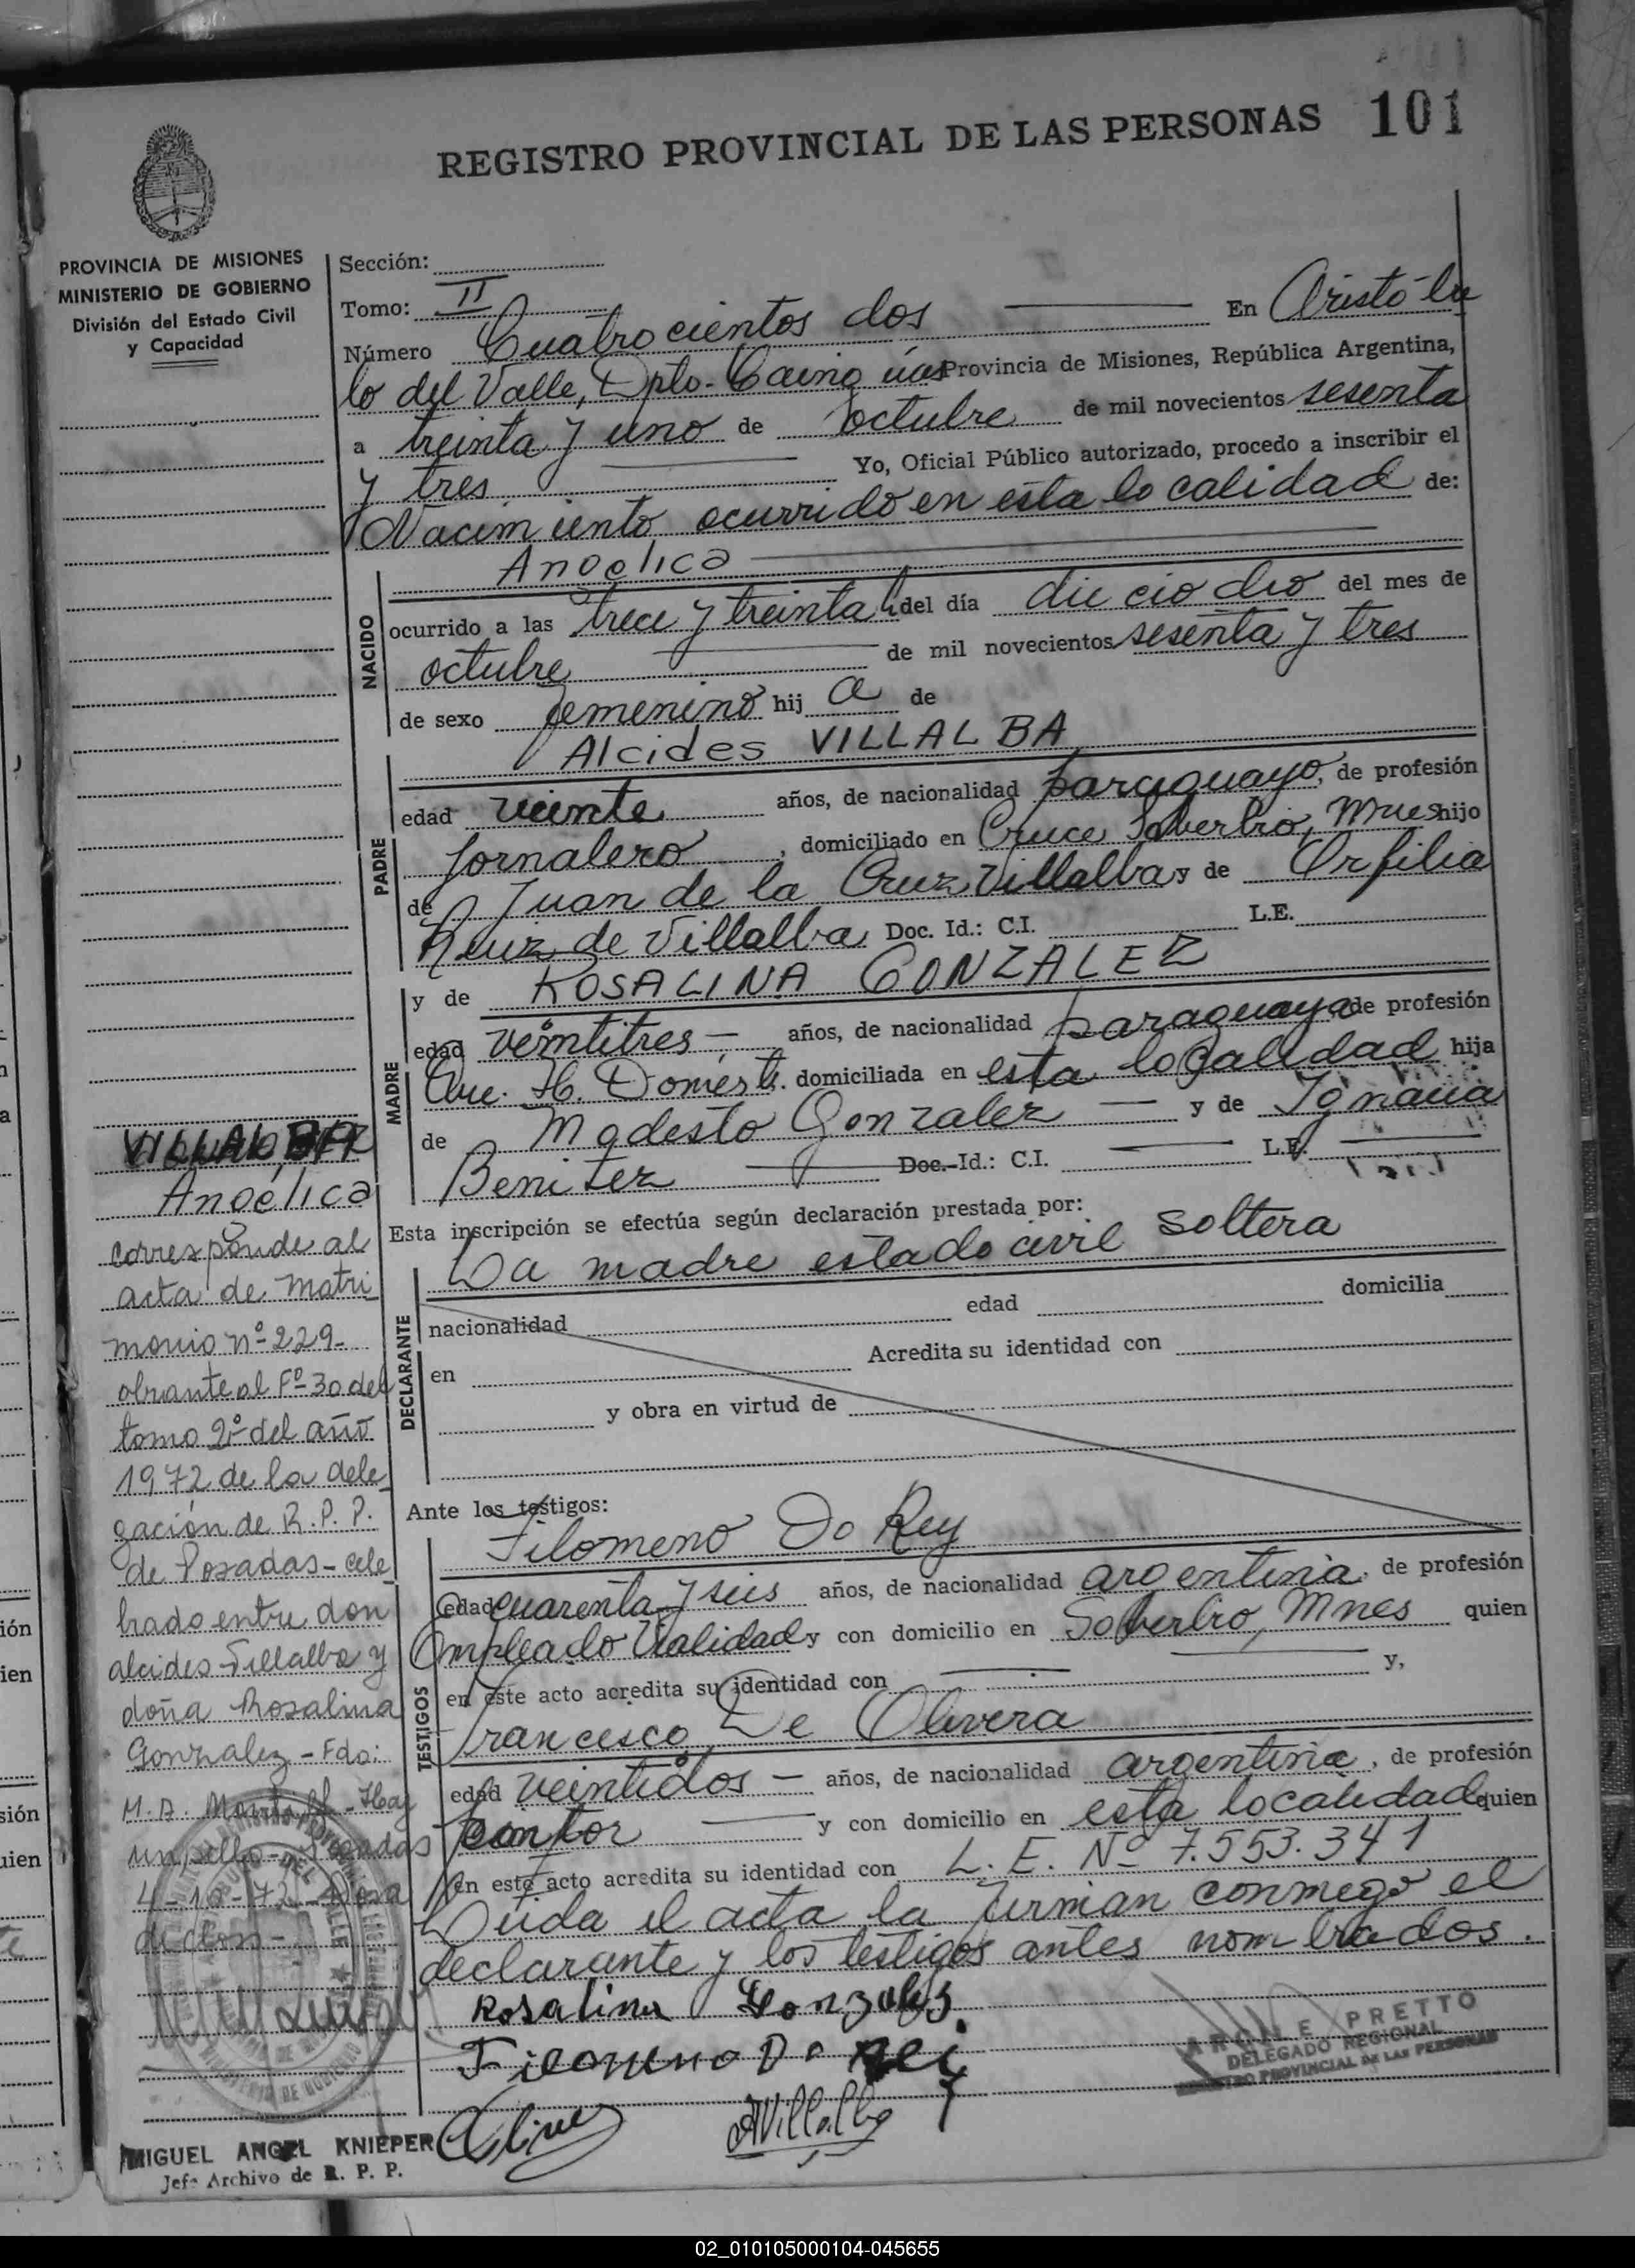 REGISTRO PROVINCIAL DE LAS PERSONAS 101
PROVINCIA DE MISIONES
MINISTERIO DE GOBIERNO
División del Estado Civil
y Capacidad
Sección:
Tomo: II
Número Cuatrocientos dos En Aristóbu
lo del Valle, Dpto. Cainguás Provincia de Misiones, República Argentina,
a treinta y uno de octubre de mil novecientos sesenta
y tres Yo, Oficial Público autorizado, procedo a inscribir el
Nacimiento ocurrido en esta localidad de:
NACIDO
Angélica
ocurrido a las trece y treinta h. del día dieciocho del mes de
octubre de mil novecientos sesenta y tres
de sexo femenino hij a de
PADRE
Alcides VILLALBA
edad veinte años, de nacionalidad paraguayo, de profesión
Jornalero, domiciliado en Cruce Soberbio, Mnes hijo
de Juan de la Cruz Villalba y de Orfilia
Ruiz de Villalba Doc. Id.: C.I. L.E.
MADRE
y de ROSALINA GONZALEZ
edad veintitres años, de nacionalidad paraguaya de profesión
Que. H. Domést. domiciliada en esta localidad hija
de Modesto Gonzalez y de Ignacia
Benitez Doc. Id.: C.I. L.E.
Esta inscripción se efectúa según declaración prestada por:
DECLARANTE
La madre estado civil soltera
nacionalidad edad domicilia
en Acredita su identidad con
y obra en virtud de
Ante los testigos:
TESTIGOS
Filomeno Do Rey
edad cuarenta y seis años, de nacionalidad argentina, de profesión
Empleado Vialidad y con domicilio en Soberbio, Mnes quien
en este acto acredita su identidad con y,
Francesco De Olivera
edad veintidos años, de nacionalidad argentina, de profesión
pintor y con domicilio en esta localidad quien
en este acto acredita su identidad con L. E. Nº 7.553.341
Leida el acta la firman conmego el
declarante y los testigos antes nombrados.
Rosalina Gonzalez
Filomeno Do Rei
AVillalba
ARON E PRETTO
DELEGADO REGIONAL
REGISTRO PROVINCIAL DE LAS PERSONAS
VILLALBA
Angélica
corresponde al
acta de matri
monio nº 229-
obrante al Fº 30 del
tomo 2º del año
1972 de la dele
gación de R. P. P.
de Posadas - cele
brado entre don
alcides Villalba y
doña Rosalina
Gonzalez - Fdo:
M. A. - Hay
un sello - Posadas
4-10-72-
MIGUEL ANGEL KNIEPER
Jefe Archivo de R. P. P.
ión
ien
sión
uien
02_010105000104-045655